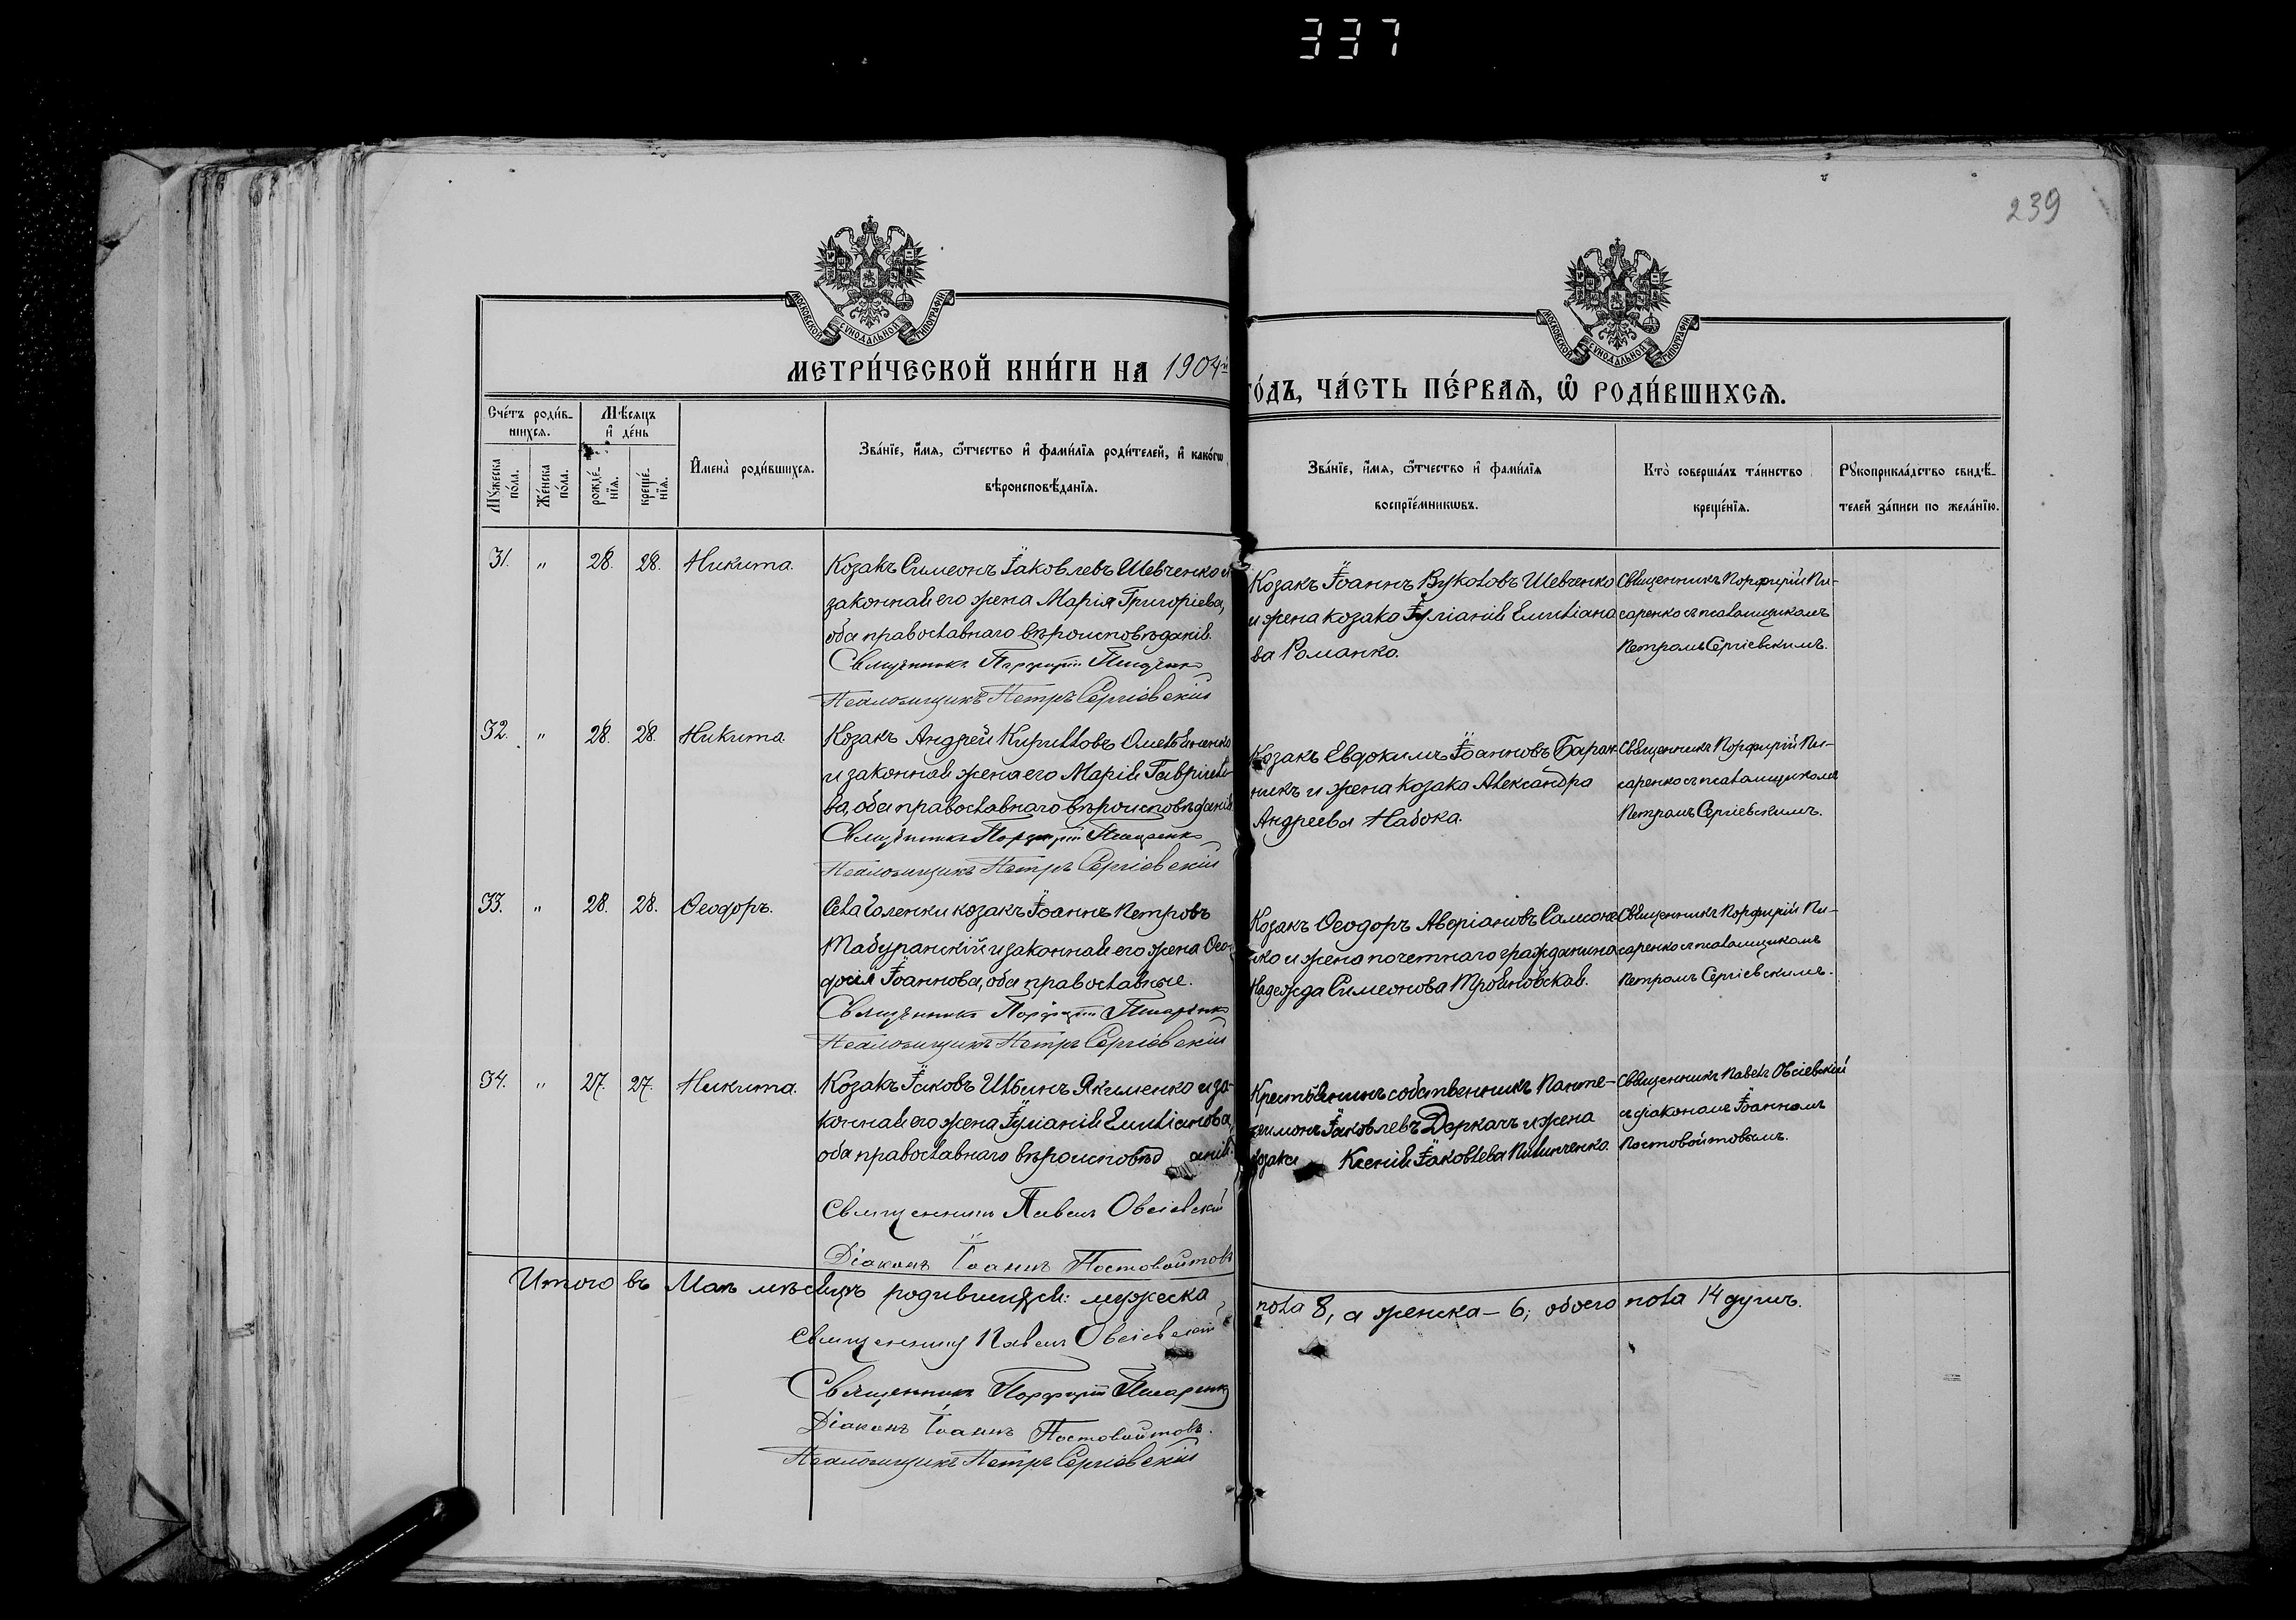 337
239
МОСКОВСКОЙ СѴНОДАЛЬНОЙ ТИПОГРАФІИ
МЕТРИ́ЧЕСКОЙ КНИ́ГИ НА 1904й
МОСКОВСКОЙ СѴНОДАЛЬНОЙ ТИПОГРАФІИ
ГО́ДЪ, ЧА́СТЬ ПЕ́РВАѦ, Ѡ РОДИ́ВШИХСѦ.
Сче́тъ роди́в-
шихсѧ.
Мꙋжеска по́ла.
Же́нска по́ла.
Мѣ́сѧцъ
и҆ де́нь
рожде́-
нїѧ.
креще́-
нїѧ.
И҆мена̀ роди́вшихсѧ.
Зва́нїе, и҆́мѧ, ѻ҆́тчество и҆ фами́лїѧ роди́телей, и҆ како́гѡ
вѣроисповѣ́данїѧ.
Зва́нїе, и҆́мѧ, ѻ҆́тчество и҆ фами́лїѧ
воспрїе́мникѡвъ.
Кто̀ соверша́лъ та́инство
креще́нїѧ.
Рꙋкоприкла́дство свидѣ́-
телей за́писи по жела́нїю.
31. " 28. 28. Никита.
Козакъ Симеонъ Іаковлевъ Шевченко и
законная его жена Марія Григоріева,
оба православнаго вѣроисповѣданія.
Священникъ Порфирій Писаренко
Псаломщикъ Петръ Сергіевскій
Козакъ Іоаннъ Вуколовъ Шевченко
и жена козака Іуліанія Емиліано
ва Романко.
Священникъ Порфирій Пи-
саренко съ псаломщикомъ
Петромъ Сергіевскимъ.
32. " 28. 28. Никита
Козакъ Андрей Кирилловъ
и законная жена его Марія Гавріиле-
ва, оба православнаго вѣроисповѣданія
Священникъ Порфирій Писаренко
Псаломщикъ Петръ Сергіевскій
Козакъ Евдокимъ Іоанновъ Баран
никъ и жена козака Александра
Андреева Набока.
Священникъ Порфирій Пи-
саренко съ псаломщикомъ
Петромъ Сергіевскимъ.
33. " 28. 28. Ѳеодоръ.
Села Голенки козакъ Іоаннъ Петровъ
Табуранскій и законная его жена Ѳео
досія Іоаннова, оба православные.
Священникъ Порфирій Писаренко
Псаломщикъ Петръ Сергіевскій
Козакъ Ѳеодоръ Аверіановъ Самсоне
нко и жена почетнаго гражданина
Надежда Симеонова Трояновская.
Священникъ Порфирій Пи-
саренко съ псаломщикомъ
Петромъ Сергіевскимъ.
34. " 27. 27. Никита.
Козакъ Іаковъ Ильинъ Якименко и за-
конная его жена Іуліанія Емиліанова,
оба православнаго вѣроисповѣд анія.
Священникъ Павелъ Овсіевскій
Діаконъ Іоаннъ Постовойтовъ
Крестьянинъ собственникъ Панте-
леимонъ Іаковлевъ Деркачъ и жена
козака Ксенія Іаковлева Пилипченко.
Священникъ Павелъ Овсіевскій
съ діакономъ Іоанномъ
Постовойтовымъ.
Итого въ Маѣ мѣсяцѣ родившихся: мужеска
пола 8, а женска – 6; обоего пола 14 душъ.
Священникъ Павелъ Овсіевскій
Священникъ Порфирій Писаренко
Діаконъ Іоаннъ Постовойтовъ.
Псаломщикъ Петръ Сергіевскій